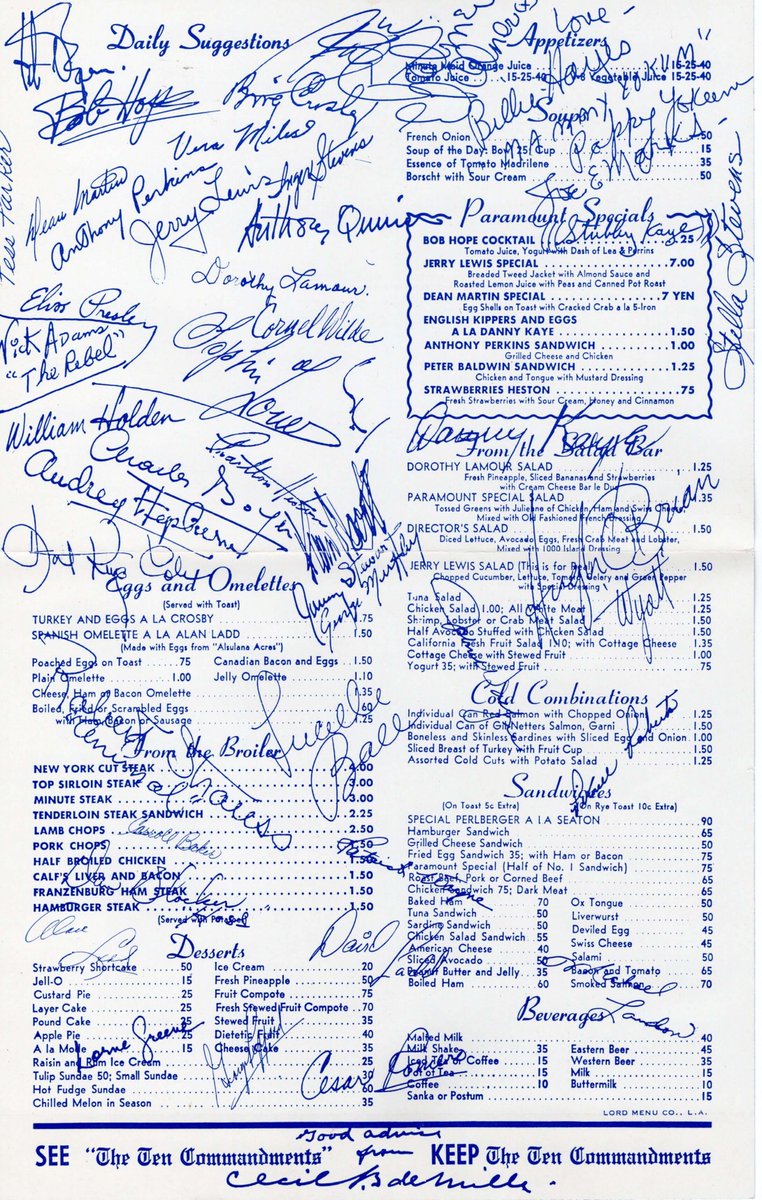 Daily Suggestions
Bob Hope
Bing Crosby
Vera Miles
Dean Martin
Anthony Perkins
Jerry Lewis
Inger Stevens
Anthony Quinn
Tess Parker
Dorothy Lamour
Elvis Presley
Nick Adams
"The Rebel"
Cornel Wilde
Sophia Loren
William Holden
Charles Boyer
Charlton Heston
Audrey Hepburn
Nat King Cole
Jimmy Stewart
George Murphy
Eggs and Omelettes
(Served with Toast)
TURKEY AND EGGS A LA CROSBY .75
SPANISH OMELETTE A LA ALAN LADD 1.50
(Made with Eggs from "Alsulana Acres")
Poached Eggs on Toast .75 Canadian Bacon and Eggs 1.50
Plain Omelette 1.00 Jelly Omelette 1.10
Cheese, Ham or Bacon Omelette 1.35
Boiled, Fried or Scrambled Eggs .60
with Ham, Bacon or Sausage 1.25
Lucille Ball
From the Broiler
NEW YORK CUT STEAK 4.00
TOP SIRLOIN STEAK 3.00
MINUTE STEAK 2.00
TENDERLOIN STEAK SANDWICH 2.25
LAMB CHOPS 2.50
PORK CHOPS 1.50
HALF BROILED CHICKEN 1.50
CALF'S LIVER AND BACON 1.50
FRANZENBURG HAM STEAK 1.50
HAMBURGER STEAK 1.50
(Served with Potatoes)
Carroll Baker
Dan Blocker
"Hoss"
Alan Ladd
David Ladd
Desserts
Strawberry Shortcake 50 Ice Cream 20
Jell-O 15 Fresh Pineapple 50
Custard Pie 25 Fruit Compote 75
Layer Cake 25 Fresh Stewed Fruit Compote 70
Pound Cake 25 Stewed Fruit 35
Apple Pie 25 Dietetic Fruit 40
A la Mode 15 Cheese Cake 40
Raisin and Rum Ice Cream 25
Tulip Sundae 50; Small Sundae 30
Hot Fudge Sundae 60
Chilled Melon in Season 35
Lorne Greene
Cesar Romero
Appetizers
Minute Maid Orange Juice 15-25-40
Tomato Juice 15-25-40 V-8 Vegetable Juice 15-25-40
Love -
Billie Hayes
"Mammy Yokum"
Pappy Yokum
Joe E Marks
Soups
French Onion 50
Soup of the Day: Bowl 25; Cup 15
Essence of Tomato Madrilene 35
Borscht with Sour Cream 50
Stubby Kaye
Stella Stevens
Paramount Specials
BOB HOPE COCKTAIL .25
Tomato Juice, Yogurt with Dash of Lea & Perrins
JERRY LEWIS SPECIAL 7.00
Breaded Tweed Jacket with Almond Sauce and
Roasted Lemon Juice with Peas and Canned Pot Roast
DEAN MARTIN SPECIAL 7 YEN
Egg Shells on Toast with Cracked Crab a la 5-Iron
ENGLISH KIPPERS AND EGGS
A LA DANNY KAYE 1.50
ANTHONY PERKINS SANDWICH 1.00
Grilled Cheese and Chicken
PETER BALDWIN SANDWICH 1.25
Chicken and Tongue with Mustard Dressing
STRAWBERRIES HESTON .75
Fresh Strawberries with Sour Cream, Honey and Cinnamon
Danny Kaye
From the Salad Bar
DOROTHY LAMOUR SALAD 1.25
Fresh Pineapple, Sliced Bananas and Strawberries
with Cream Cheese Bar le Duc
PARAMOUNT SPECIAL SALAD 1.35
Tossed Greens with Julienne of Chicken, Ham and Swiss Cheese
Mixed with Old Fashioned French Dressing
DIRECTOR'S SALAD 1.50
Diced Lettuce, Avocado, Eggs, Fresh Crab Meat and Lobster,
Mixed with 1000 Island Dressing
JERRY LEWIS SALAD (This is for Real) 1.50
Chopped Cucumber, Lettuce, Tomato, Celery and Green Pepper
with Special Dressing
Tuna Salad 1.25
Chicken Salad 1.00; All White Meat 1.25
Shrimp, Lobster or Crab Meat Salad 1.50
Half Avocado Stuffed with Chicken Salad 1.50
California Fresh Fruit Salad 1.10; with Cottage Cheese 1.35
Cottage Cheese with Stewed Fruit 1.00
Yogurt 35; with Stewed Fruit 75
Hugh O'Brian
Wyatt
Cold Combinations
Individual Can Red Salmon with Chopped Onion 1.25
Individual Can of Gill Netters Salmon, Garni 1.25
Boneless and Skinless Sardines with Sliced Egg and Onion 1.00
Sliced Breast of Turkey with Fruit Cup 1.50
Assorted Cold Cuts with Potato Salad 1.25
Pernell Roberts
Sandwiches
(On Toast 5c Extra) (On Rye Toast 10c Extra)
SPECIAL PERLBERGER A LA SEATON 90
Hamburger Sandwich 65
Grilled Cheese Sandwich 50
Fried Egg Sandwich 35; with Ham or Bacon 75
Paramount Special (Half of No. 1 Sandwich) 75
Roast Beef, Pork or Corned Beef 65
Chicken Sandwich 75; Dark Meat 65
Baked Ham 70 Ox Tongue 50
Tuna Sandwich 50 Liverwurst 50
Sardine Sandwich 50 Deviled Egg 45
Chicken Salad Sandwich 55 Swiss Cheese 45
American Cheese 40 Salami 50
Sliced Avocado 50 Bacon and Tomato 65
Peanut Butter and Jelly 35 Smoked Salmon 70
Boiled Ham 60
Michael Landon
Beverages
Malted Milk 40
Milk Shake 35 Eastern Beer 45
Iced Tea or Coffee 15 Western Beer 35
Pot of Tea 15 Milk 15
Coffee 10 Buttermilk 10
Sanka or Postum 15
LORD MENU CO., L.A.
SEE "The Ten Commandments" KEEP The Ten Commandments
Good advice
from
Cecil B deMille